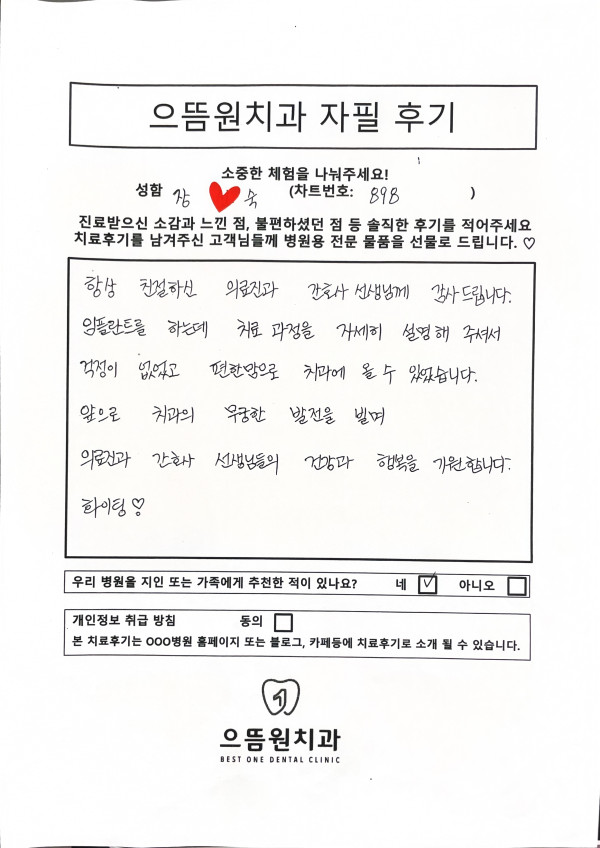 으뜸원치과 자필 후기
소중한 체험을 나눠주세요!
성함 장 숙 (차트번호: 898 )
진료받으신 소감과 느낀 점, 불편하셨던 점 등 솔직한 후기를 적어주세요
치료후기를 남겨주신 고객님들께 병원용 전문 물품을 선물로 드립니다. ♡
항상 친절하신 의료진과 간호사 선생님께 감사드립니다.
임플란트를 하는데 치료 과정을 자세히 설명해 주셔서
걱정이 없었고 편한맘으로 치과에 올 수 있었습니다.
앞으로 치과의 무궁한 발전을 빌며
의료진과 간호사 선생님들의 건강과 행복을 기원합니다.
화이팅♡
우리 병원을 지인 또는 가족에게 추천한 적이 있나요? 네 ☑ 아니오 ☐
개인정보 취급 방침 동의 ☐
본 치료후기는 OOO병원 홈페이지 또는 블로그, 카페등에 치료후기로 소개 될 수 있습니다.
으뜸원치과
BEST ONE DENTAL CLINIC